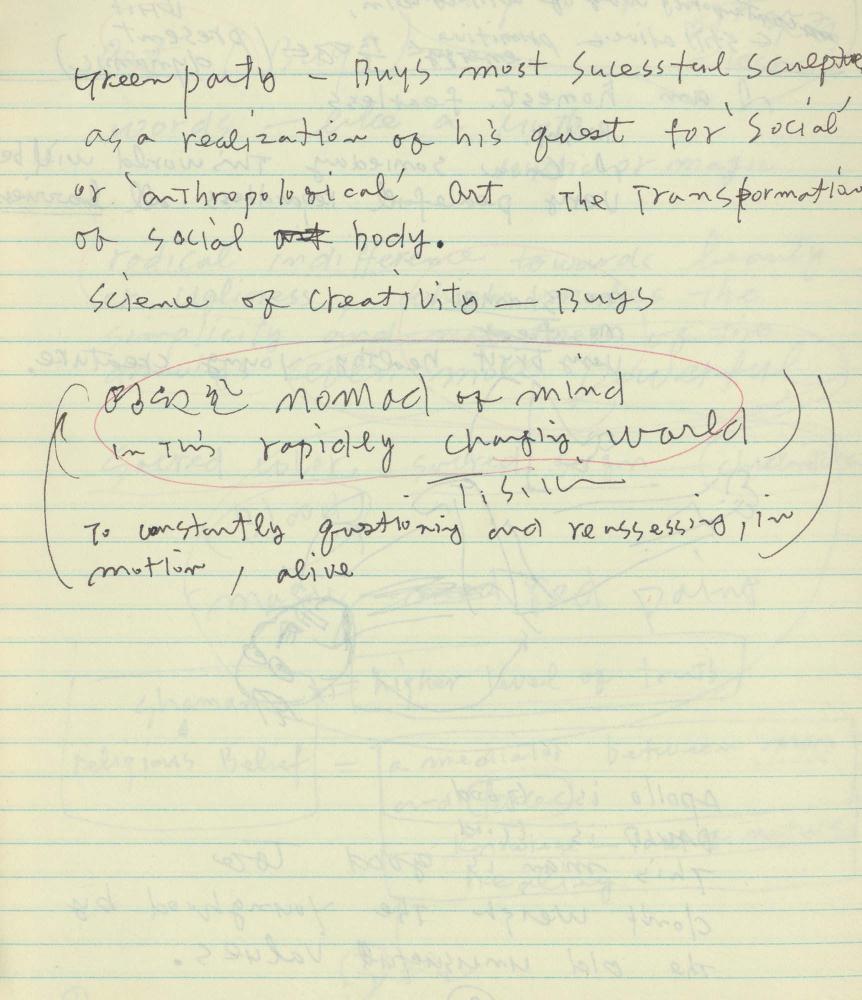 Green party – Buys most sucessful sculptu
as a realization of his quest for 'social'
or 'anthropological' art the transformation
of social art body.
Science of creativity — Buys
영원한 nomad of mind
in this rapidly changing world
To constantly questioning and reassessing, in
motion, alive